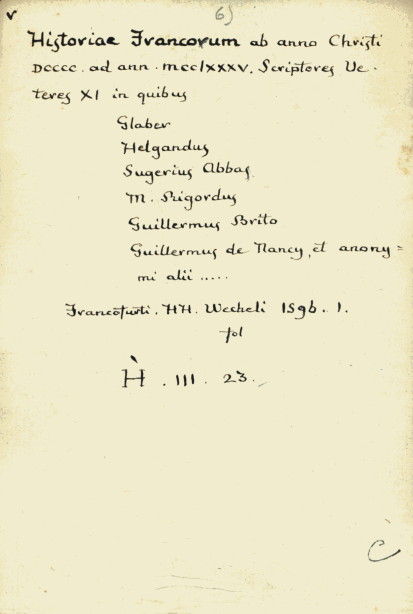 v 6)
Historiae Francorum ab anno Christi
DCCCC. ad ann. MCCLXXXV. Scriptores Ve-
teres XI in quibus
Glaber
Helgandus
Sugerius Abbas.
M. Rigordus
Guillermus Brito
Guillermus de Nancy, et anony=
mi alii .....
Francofurti. HH. Wecheli 1596. 1.
fol
H . III . 23.
C